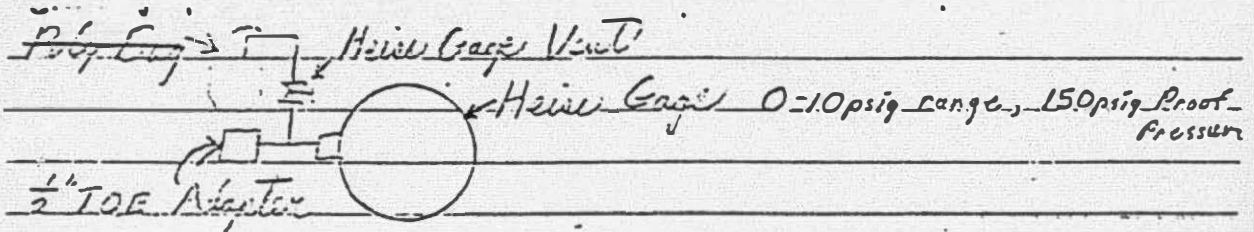 Poly Bag
Heise Gage Vent
Heise Gage 0-10psig range, 150psig Proof
Pressure
1/2" TOE Adaptor